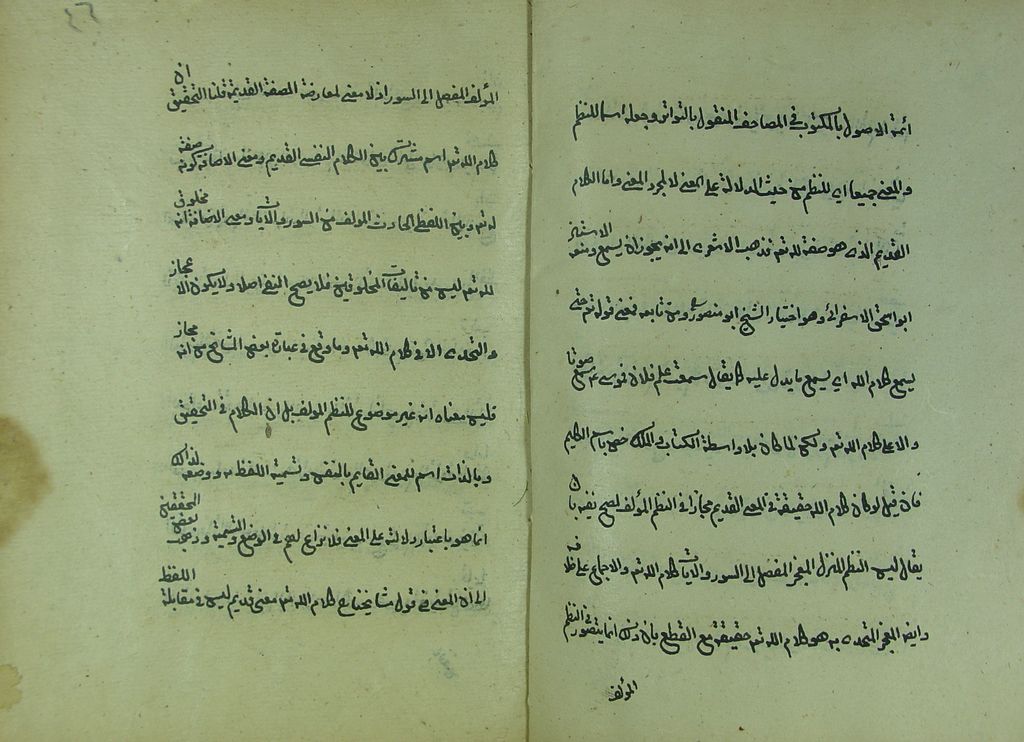 ائمة الاصول بالمكتوب في المصاحف المنقول بالتواتر وجعله اسما للنظم
والمعنى جميعا اي للنظم من حيث الدلالة على المعنى لا لمجرد المعنى واما الكلام
القديم الذي هو صفة لله تعه فذهب الاشعرى الى انه يجوز ان يسمع ومنعه الاستاذ
ابو اسحق الاسفرائي وهو اختيار الشيخ ابو منصور ره ومن تابعه فمعنى قوله تع حتى
يسمع كلام الله اي يسمع ما يدل عليه كما يقال سمعت علم فلان فموسى عم سمع صوتا
دالا على كلام الله تعه ولكن لما كان بلا واسطة الكتاب والملك خص باسم الكليم
فان قيل لو كان كلام الله حقيقة في المعنى القديم مجازا في النظم المؤلف لصح نفيه بان
يقال ليس النظم المنزل المعجز المفصل الى السور والايات كلام الله تعه والاجماع على خلافه
وايضه المعجز المتحدى به هو كلام الله تعه حقيقة مع القطع بان ذلك انما يتصور في النظم
المؤلف
٤٦
المؤلف المفصل الى السور اذ لا معنى لمعارضة الصفة القديمة قلنا التحقيق ان
كلام الله تعه اسم مشترك بين الكلام النفسى القديم ومعنى الاضافة كونه صفة
له تعه وبين اللفظى الحادث المؤلف من السور والايات ومعنى الاضافة انه مخلوق
لله تعه ليس من تاليفات المخلوقين فلا يصح النفى اصلا ولا يكون الاعجاز
والتحدى الا في كلام الله تعه وما وقع في عبارة بعض المشايخ من انه مجاز
فليس معناه انه غير موضوع للنظم المؤلف بل ان الكلام في التحقيق
وبالذات اسم للمعنى القايم بالنفس وتسمية اللفظ به ووضعه لذلك
انما هو باعتبار دلالته على المعنى فلا نزاع لهم في الوضع والتسمية وذهب بعض المحققين
الى ان المعنى في قول مشايخنا كلام الله تعه معنى قديم ليس في مقابلة اللفظ